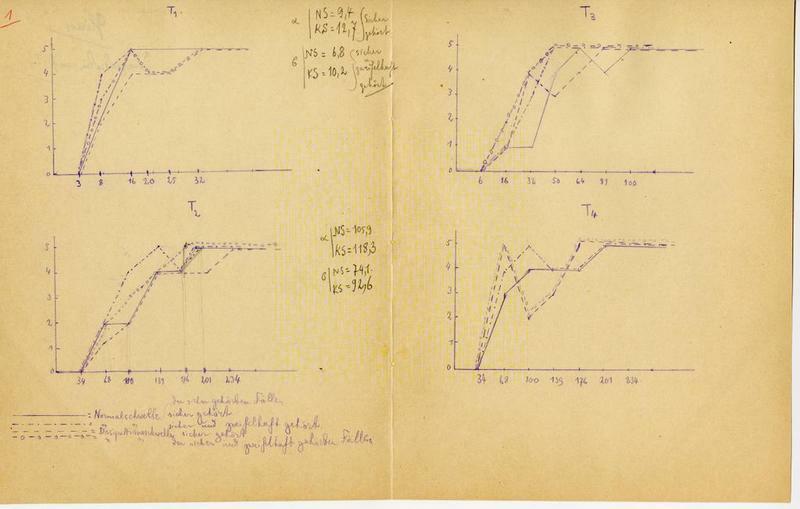 1
T1.
α NS = 9,4 sicher
KS = 12,7 gehört
σ NS = 6,8 sicher
KS = 10,2 zweifelhaft
gehört
5
4
3
2
1
0
3 8 16 20 25 32
T3
5
4
3
2
1
0
6 16 36 50 64 100
T2
α NS = 105,9
KS = 118,3
σ NS = 74,1.
KS = 92,6
5
4
3
2
1
0
34 68 100 139 176 201 234
T4
5
4
3
2
1
0
34 68 100 139 176 201 234.
der sicher gehörten Fälle
= Normalschwelle sicher gehört
= " sicher und zweifelhaft gehört
= sicher gehört
= " der sicher und zweifelhaft gehörten Fälle